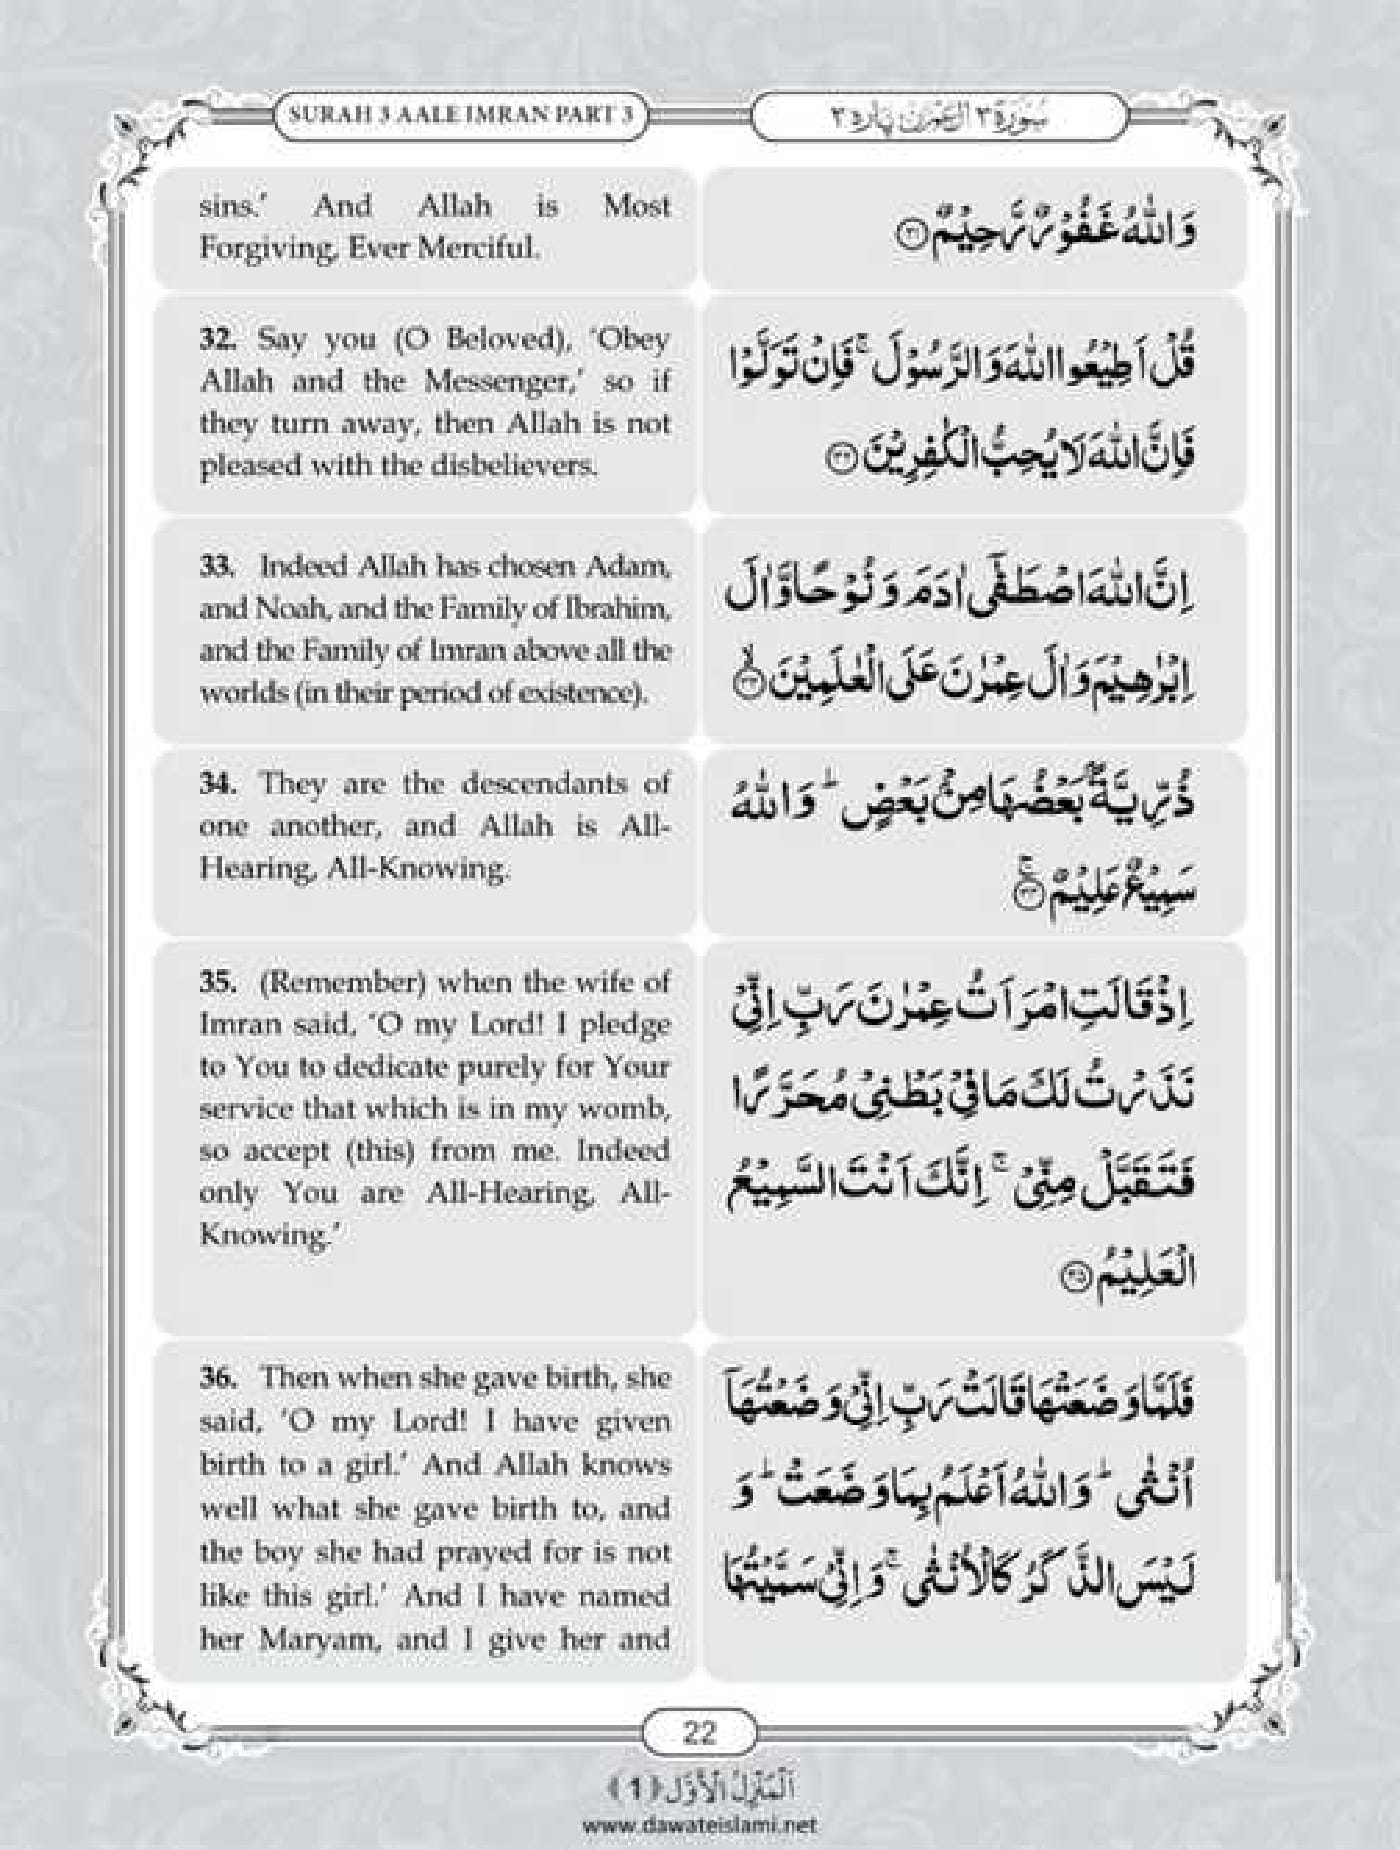 SURAH 3 AALE IMRAN PART 3
سُوْرَةُ ٣ اٰلِ عِمْرٰن پاره ٣
sins.’ And Allah is Most
Forgiving, Ever Merciful.
وَاللّٰهُ غَفُوْرٌ رَّحِيْمٌ ﴿٣١﴾
32. Say you (O Beloved), ‘Obey
Allah and the Messenger,’ so if
they turn away, then Allah is not
pleased with the disbelievers.
قُلْ اَطِيْعُوا اللّٰهَ وَالرَّسُوْلَ ۚ فَاِنْ تَوَلَّوْا
فَاِنَّ اللّٰهَ لَا يُحِبُّ الْكٰفِرِيْنَ ﴿٣٢﴾
33. Indeed Allah has chosen Adam,
and Noah, and the Family of Ibrahim,
and the Family of Imran above all the
worlds (in their period of existence).
اِنَّ اللّٰهَ اصْطَفٰۤى اٰدَمَ وَ نُوْحًا وَّ اٰلَ
اِبْرٰهِيْمَ وَ اٰلَ عِمْرٰنَ عَلَى الْعٰلَمِيْنَ ﴿٣٣﴾ۙ
34. They are the descendants of
one another, and Allah is All-
Hearing, All-Knowing.
ذُرِّيَّةًۢ بَعْضُهَا مِنْۢ بَعْضٍ ؕ وَ اللّٰهُ
سَمِيْعٌ عَلِيْمٌ ﴿٣٤﴾ۚ
35. (Remember) when the wife of
Imran said, ‘O my Lord! I pledge
to You to dedicate purely for Your
service that which is in my womb,
so accept (this) from me. Indeed
only You are All-Hearing, All-
Knowing.’
اِذْ قَالَتِ امْرَاَتُ عِمْرٰنَ رَبِّ اِنِّيْ
نَذَرْتُ لَكَ مَا فِيْ بَطْنِيْ مُحَرَّرًا
فَتَقَبَّلْ مِنِّيْ ۚ اِنَّكَ اَنْتَ السَّمِيْعُ
الْعَلِيْمُ ﴿٣٥﴾
36. Then when she gave birth, she
said, ‘O my Lord! I have given
birth to a girl.’ And Allah knows
well what she gave birth to, and
the boy she had prayed for is not
like this girl.’ And I have named
her Maryam, and I give her and
فَلَمَّا وَضَعَتْهَا قَالَتْ رَبِّ اِنِّيْ وَضَعْتُهَاۤ
اُنْثٰى ؕ وَ اللّٰهُ اَعْلَمُ بِمَا وَضَعَتْ ؕ وَ
لَيْسَ الذَّكَرُ كَالْاُنْثٰى ۚ وَ اِنِّيْ سَمَّيْتُهَا
22
اَلْمَنْزِلُ الْاَوَّل ﴿1﴾
www.dawateislami.net